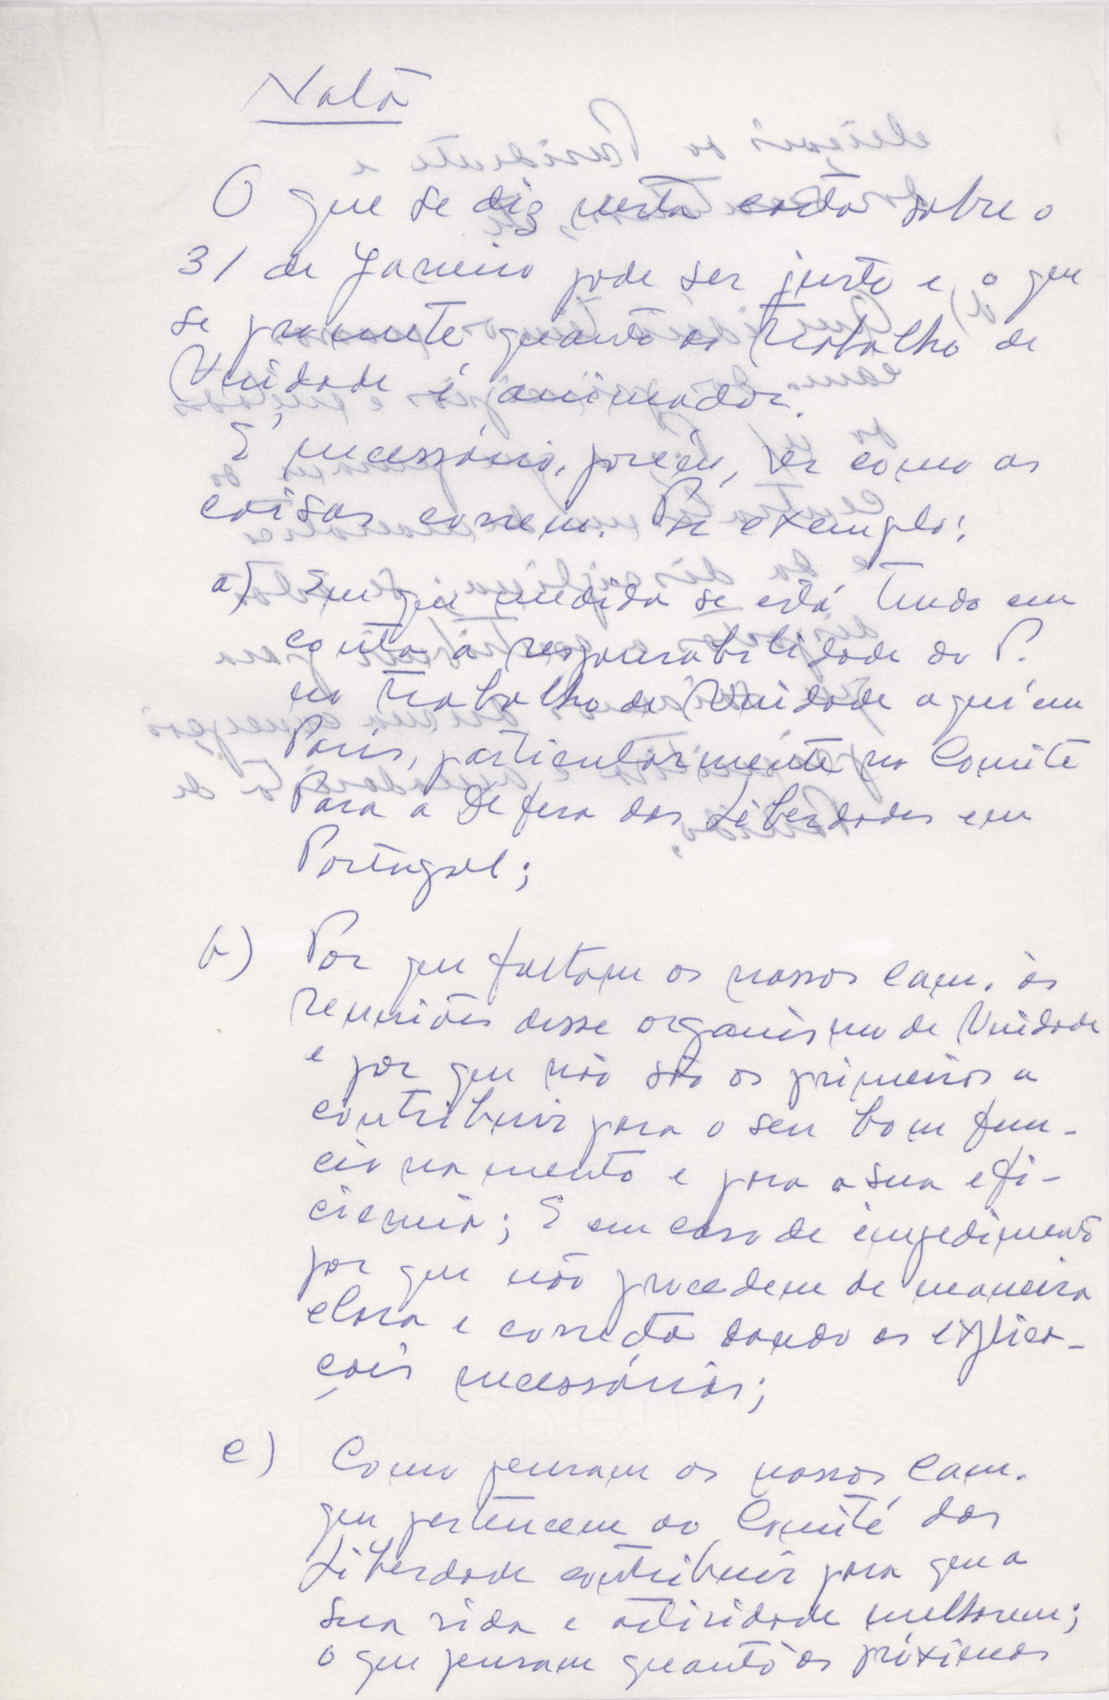 Nota
O que se diz nesta carta sobre o
31 de Janeiro pode ser justo e o que
se promete quanto ao trabalho de
Unidade é animador.
É necessário, porém, ver como as
coisas correm. Por exemplo:
a) Em que medida se está tendo em
conta a responsabilidade do P.
no trabalho da Unidade aqui em
Paris, particularmente no Comité
Para a Defesa das Liberdades em
Portugal;
b) Por que faltam os nossos cam. às
reuniões desse organismo de Unidade
e por que não são os primeiros a
contribuir para o seu bom fun-
cionamento e para a sua efi-
ciencia; E em caso de impedimento
por que não procedem de maneira
clara e correcta dando as explica-
ções necessárias;
c) Como pensam os nossos cam.
que pertencem ao Comité das
Liberdade contribuir para que a
sua vida e actividade melhorem;
o que pensam quanto às próximas